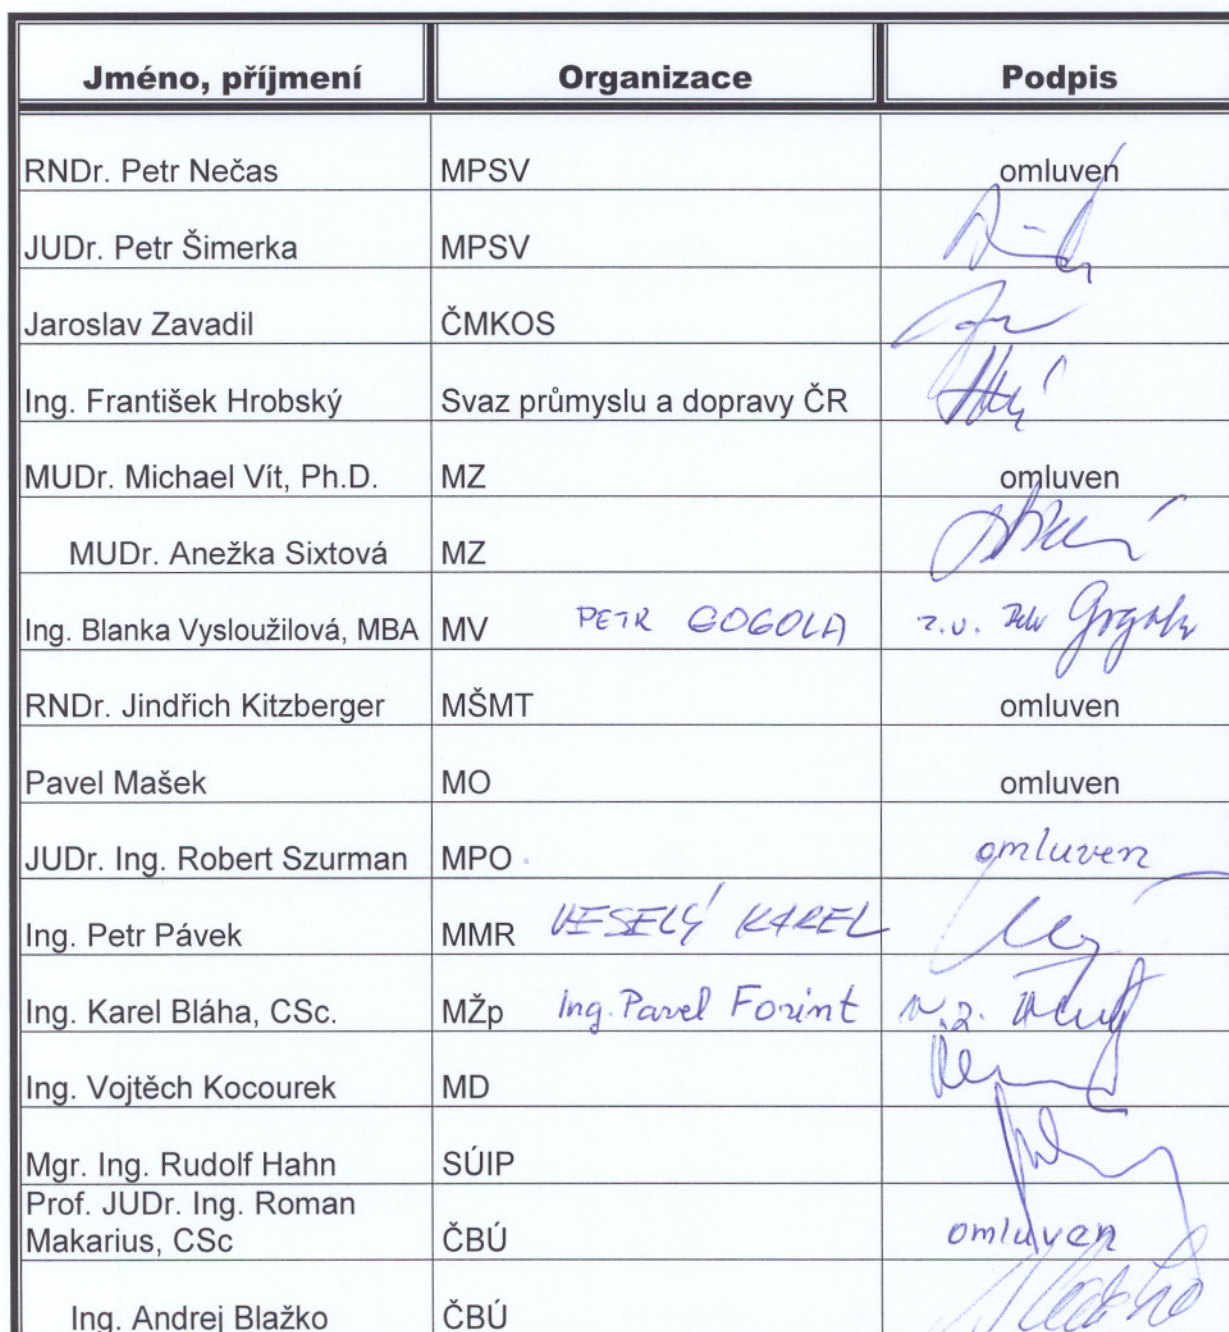 Jméno, příjmení Organizace Podpis
RNDr. Petr Nečas MPSV omluven
JUDr. Petr Šimerka MPSV
Jaroslav Zavadil ČMKOS
Ing. František Hrobský Svaz průmyslu a dopravy ČR
MUDr. Michael Vít, Ph.D. MZ omluven
MUDr. Anežka Sixtová MZ
Ing. Blanka Vysloužilová, MBA MV PETR GOGOLA z.v. Petr Gogola
RNDr. Jindřich Kitzberger MŠMT omluven
Pavel Mašek MO omluven
JUDr. Ing. Robert Szurman MPO omluven
Ing. Petr Pávek MMR VESELÝ KAREL
Ing. Karel Bláha, CSc. MŽp Ing. Pavel Forint
Ing. Vojtěch Kocourek MD
Mgr. Ing. Rudolf Hahn SÚIP
Prof. JUDr. Ing. Roman
Makarius, CSc ČBÚ omluven
Ing. Andrej Blažko ČBÚ